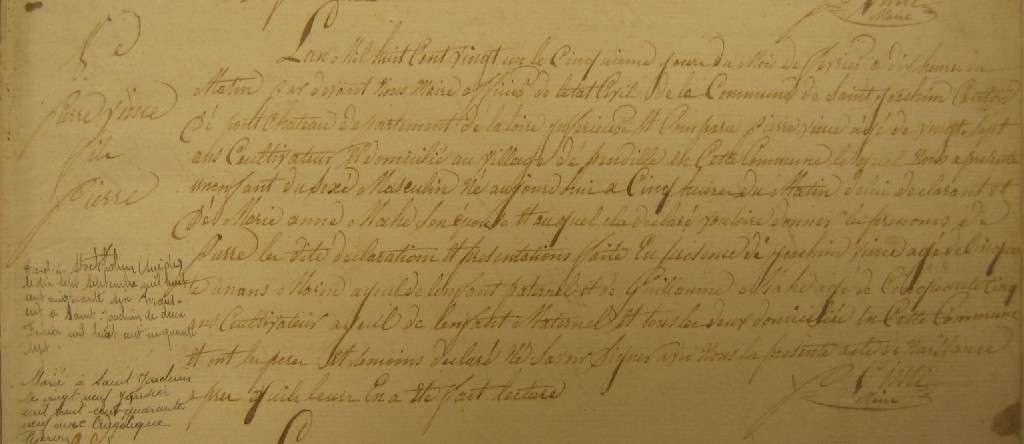 Maire
Pierre vince
fils
Pierre
Lan Mil huit Cent vingt un le Cinquieme jour du Mois de Fevrier a dix heures du
Matin par devant Nous Maire officier de letat Civil de la Commune de Saint joachim Canton
Dé pont Chateau departement de la loire inferieure Est Comparu pierre vince agé de vingt sept
ans Cultivateur Et domicilié au village dé pendille en Cette Commune lequel Nous a presenté
un enfant du sexe Masculin Né aujourdhui a Cinq heures du Matin de lui declarant Et
Dé Marie anne Mahé Son épouse Et auquel il a declaré vouloir donner les prenoms de
Pierre les dité declarations Et presentations faite En presence dé joachim vince age de
un ans Marin ayeul de lenfant paternel Et de Guillaume Mahé age de Cinquante Cinq
ans Cultivateur ayeuil de lenfant Maternel Et tous les deux domiciliés En Cette Commune
Et ont les pere Et temoins declaré Né Savoir Signer avec Nous la presente acte de Naissance
apres quil leur En a Eté fait lecture
Maire
le dix sept septembre mil huit
cent cinquante six
à Saint-Joachim le deux
Fevrier mil huit cent cinquante
sept
Marié à Saint Joachim
le vingt neuf Janvier
mil huit cent quarante
neuf avec Angélique